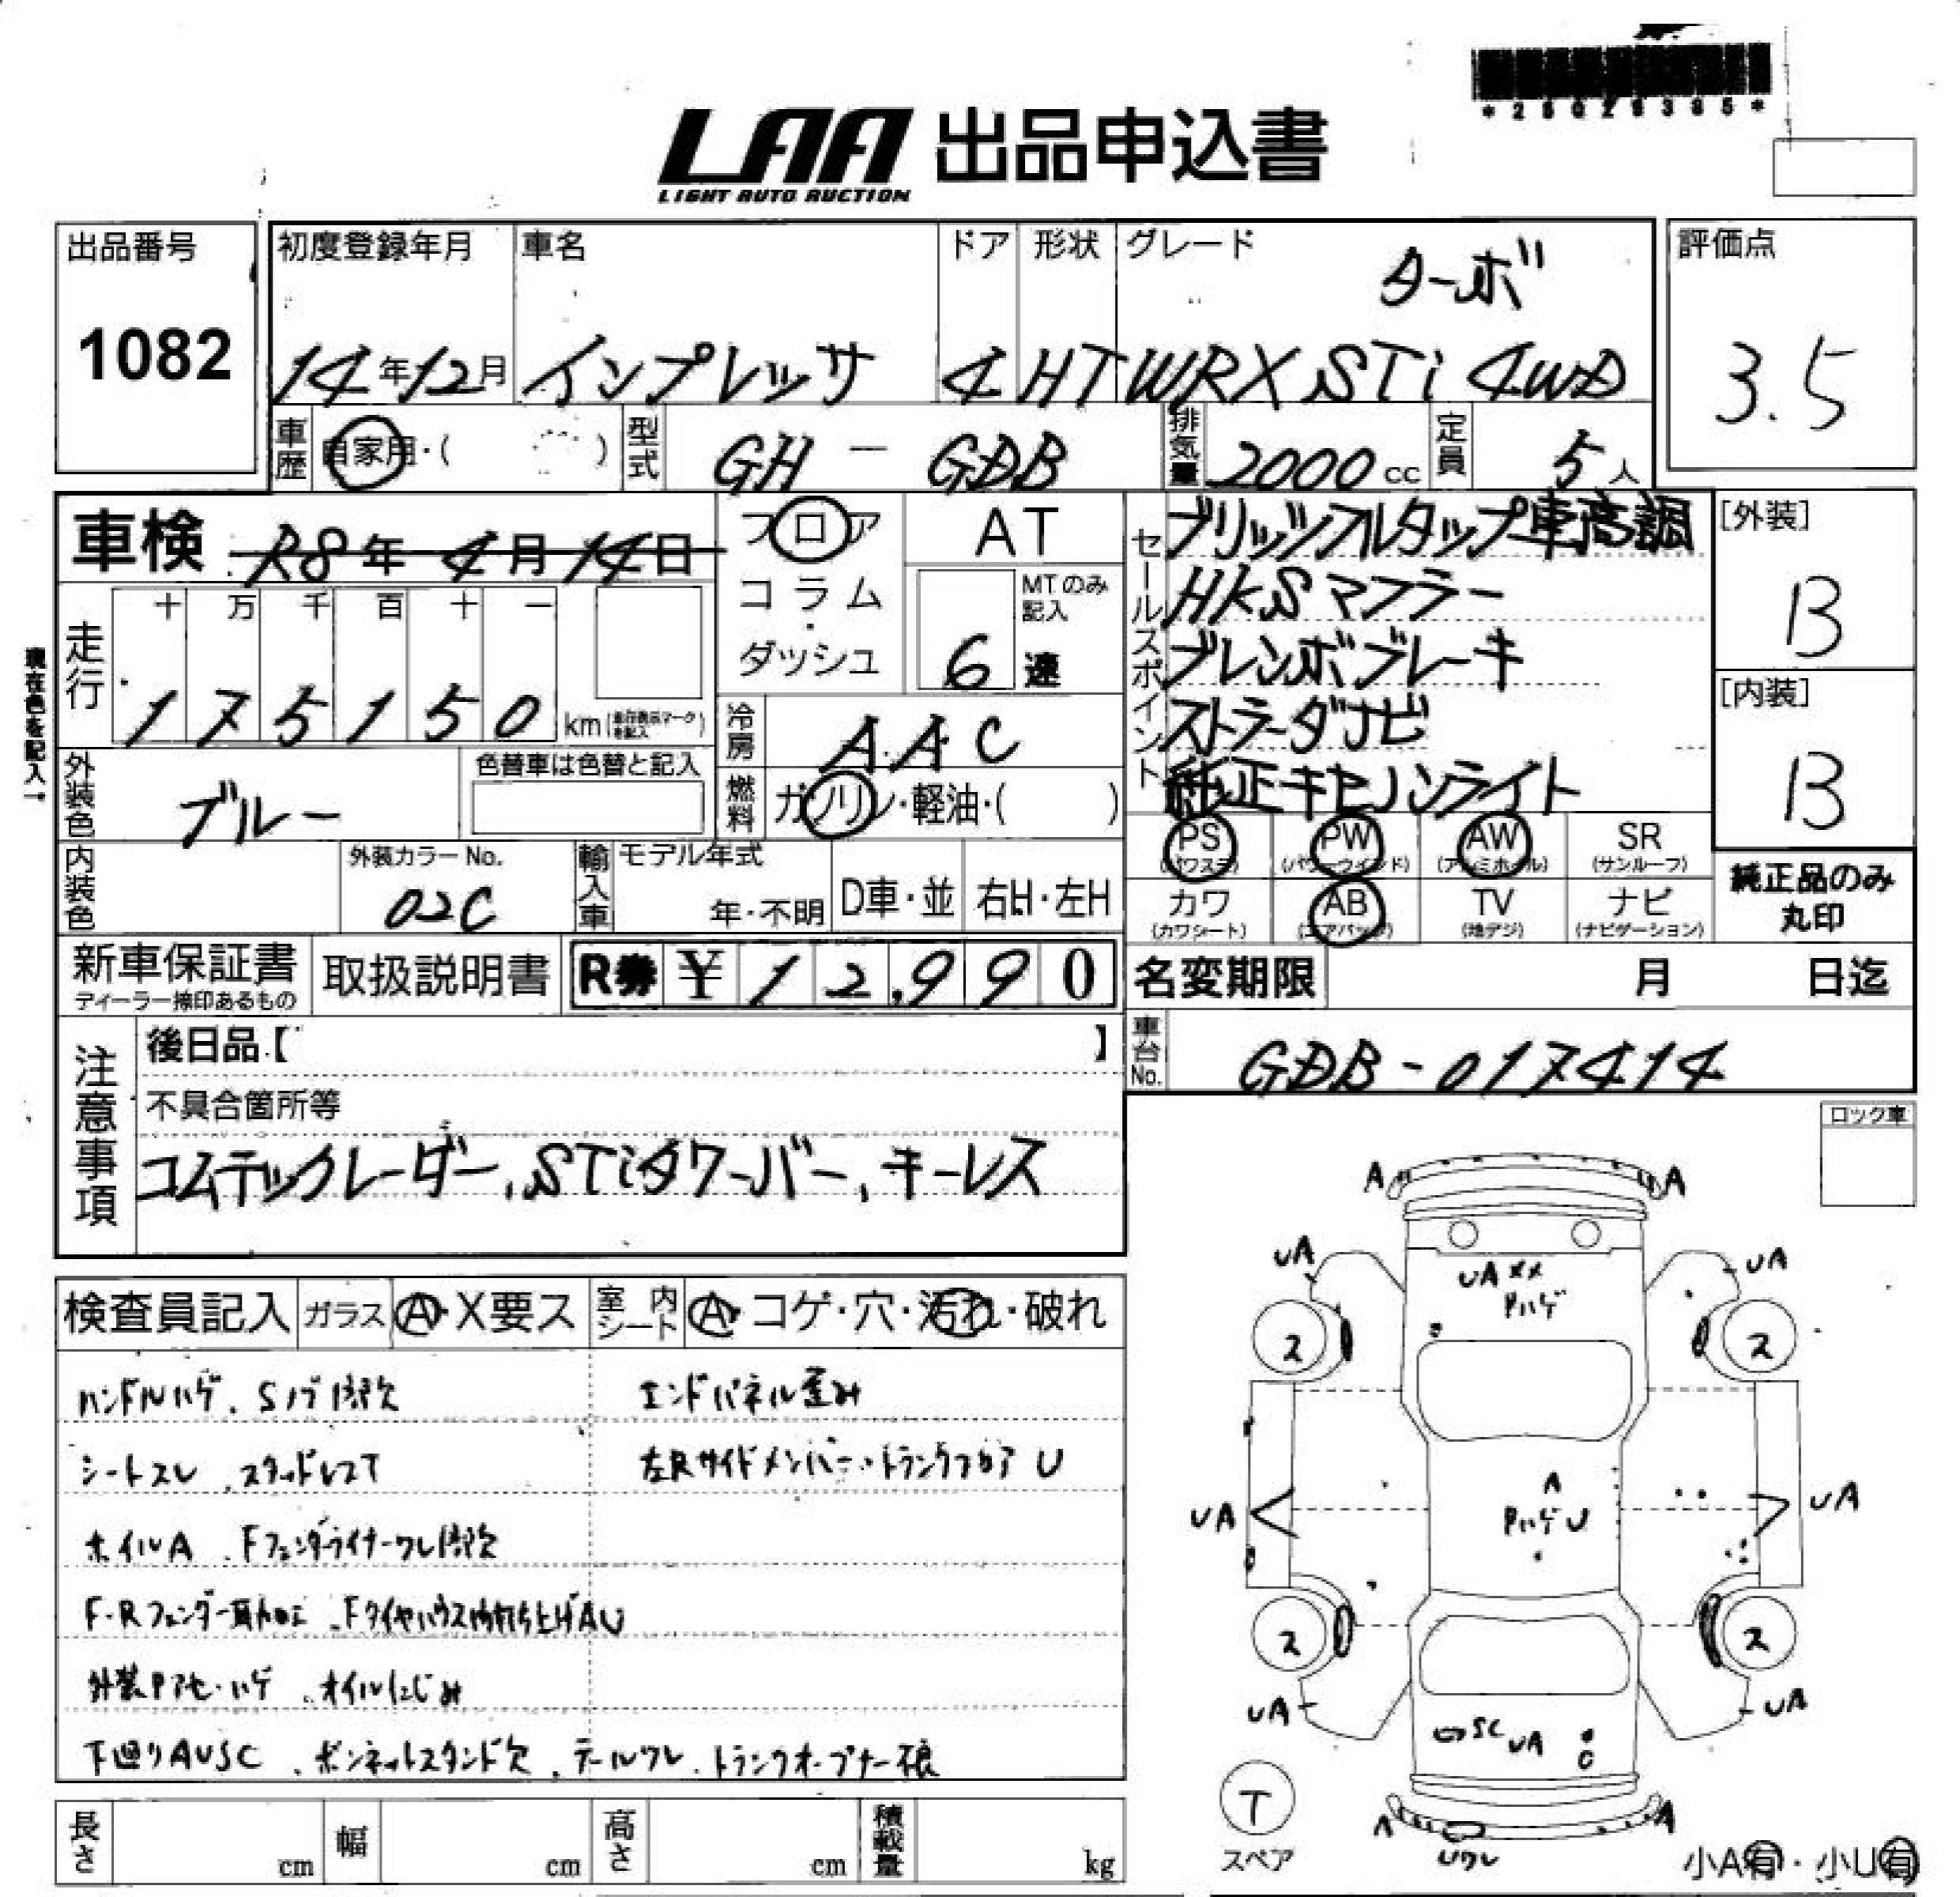 *25026385*
LAA 出品申込書
LIGHT AUTO AUCTION
出品番号
1082
初度登録年月
14年12月
車名
インプレッサ
ドア
4
形状
HT
グレード
ターボ
WRX STi 4WD
評価点
3.5
車歴
自家用・( )
型式
GH - GDB
排気量
2000cc
定員
5人
車検 R8年4月14日
フロア
コラム
・
ダッシュ
AT
MTのみ記入
6速
走行
十万千百十一
175150km
現在色を記入→
冷房
AAC
燃料
ガソリン・軽油・( )
外装色
ブルー
色替車は色替と記入
内装色
外装カラーNo.
02C
輸入車
モデル年式
年・不明
D車・並
右H・左H
セールスポイント
ブリッツフルタップ車高調
HKSマフラー
ブレンボブレーキ
ストラーダナビ
純正キセノンライト
[外装]
B
[内装]
B
PS (パワステ)
PW (パワーウィンド)
AW (アルミホイル)
SR (サンルーフ)
カワ (カワシート)
AB (エアバッグ)
TV (地デジ)
ナビ (ナビゲーション)
純正品のみ
丸印
新車保証書
ディーラー捺印あるもの
取扱説明書
R券 ¥12,990
名変期限 月 日迄
車台No.
GDB-017414
注意事項
後日品【 】
不具合箇所等
コムテックレーダー,STiタワーバー,キーレス
ロック車
検査員記入 ガラス A・X要ス 室内シート A・コゲ・穴・汚れ・破れ
ハンドルハゲ、Sノブ1部欠
エンドパネル歪み
シートスレ、スタッドレスT
左Rサイドメンバー・トランクフロア U
ホイルA、Fフェンダーライナーワレ1部欠
F・Rフェンダー耳加工、Fタイヤハウス内打ち上げAU
外装Pアセ・ハゲ、オイルにじみ
下廻りAUSC、ボンネットスタンド欠、テールワレ、トランクオープナー不良
A A
UA UA
UA XX
Pハゲ
2 2
A
PハゲU
UA UA
2 2
UA UA
SC UA
T
スペア
A A
Uワレ
小A有・小U有
長さ cm 幅 cm 高さ cm 積載量 kg